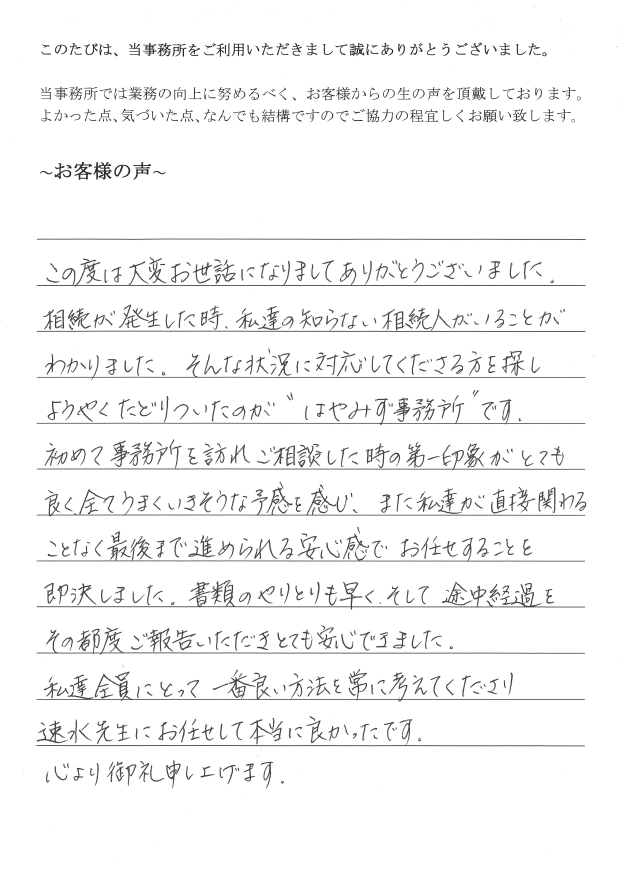 このたびは、当事務所をご利用いただきまして誠にありがとうございました。
当事務所では業務の向上に努めるべく、お客様からの生の声を頂戴しております。
よかった点、気づいた点、なんでも結構ですのでご協力の程宜しくお願い致します。
~お客様の声~
この度は大変お世話になりましてありがとうございました。
相続が発生した時、私達の知らない相続人がいることが
わかりました。そんな状況に対応してくださる方を探し
ようやくたどりついたのが〝はやみず事務所〟です。
初めて事務所を訪れご相談した時の第一印象がとても
良く、全てうまくいきそうな予感を感じ、また私達が直接関わる
ことなく最後まで進められる安心感でお任せすることを
即決しました。書類のやりとりも早く、そして途中経過を
その都度ご報告いただきとても安心できました。
私達全員にとって一番良い方法を常に考えてくださり
速水先生にお任せして本当に良かったです。
心より御礼申し上げます。